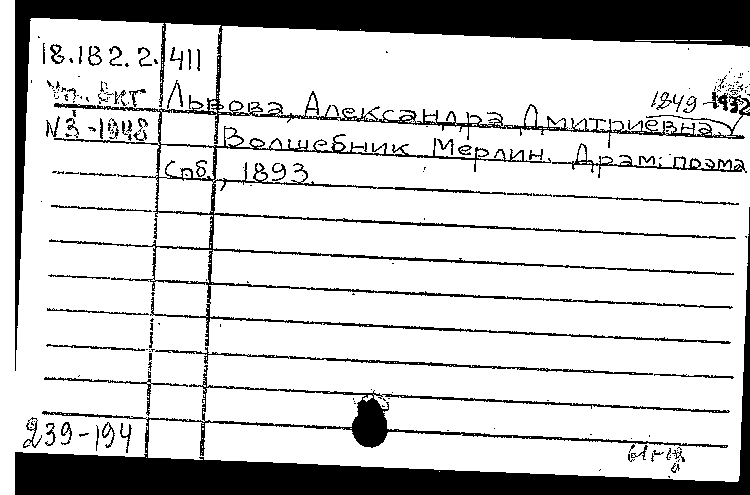 18.182.2.411
1849-1932
Львова, Александра Дмитриевна.
N3-1948
Волшебник Мерлин. Драм. поэма
Спб., 1893.
239-194